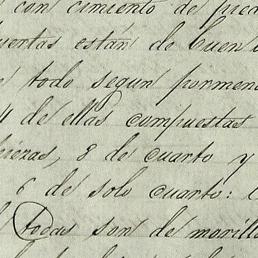 con cimiento de pied
uertas están de buen u
e todo segun pormeno
4 de ellas compuestas
piezas, 8 de cuarto y
6 de solo cuarto:
todas son de morillo